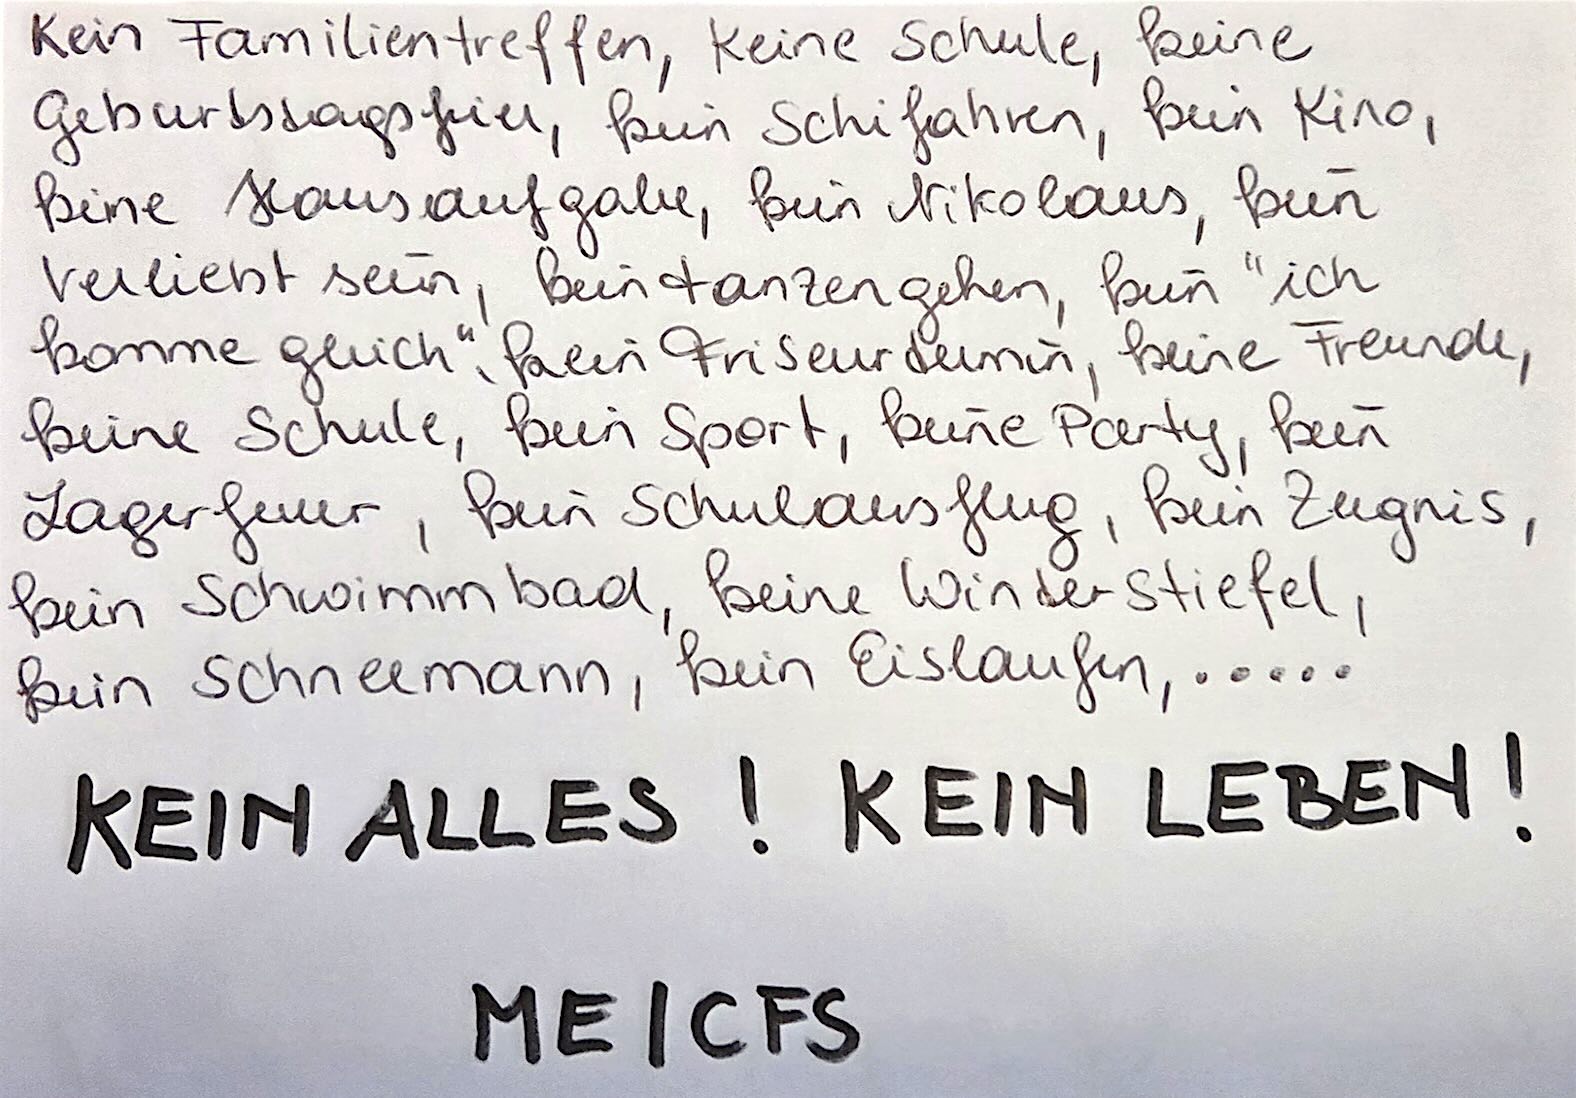 Kein Familientreffen, Keine Schule, keine
Geburtstagsfeier, kein Schifahren, kein Kino,
keine Hausaufgabe, kein Nikolaus, kein
verliebt sein, kein tanzen gehen, kein "ich
komme gleich", kein Friseurtermin, keine Freunde,
keine Schule, kein Sport, keine Party, kein
Lagerfeuer, kein Schulausflug, kein Zeugnis,
kein Schwimmbad, keine Winterstiefel,
kein Schneemann, kein Eislaufen, .....
KEIN ALLES! KEIN LEBEN!
ME/CFS